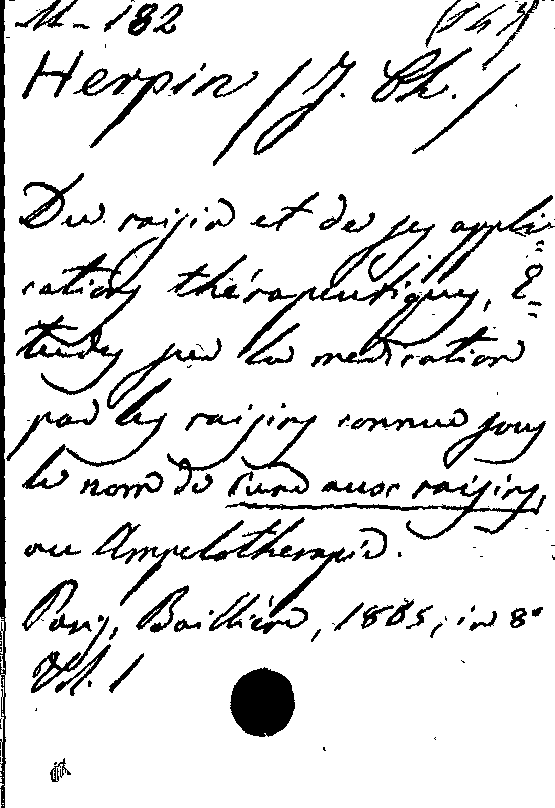 M-182
Herpin (J. Ch.)
Du raisin et de ses appli=
cations thérapeutiques, E=
tudes sur la medication
par les raisins connue sous
le nom de cure aux raisins,
ou Ampelotherapie.
Paris, Baillière, 1865, in 8º
Vol. 1